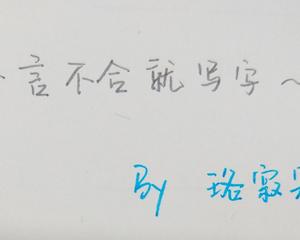 言不合就写字~
By 珞寂